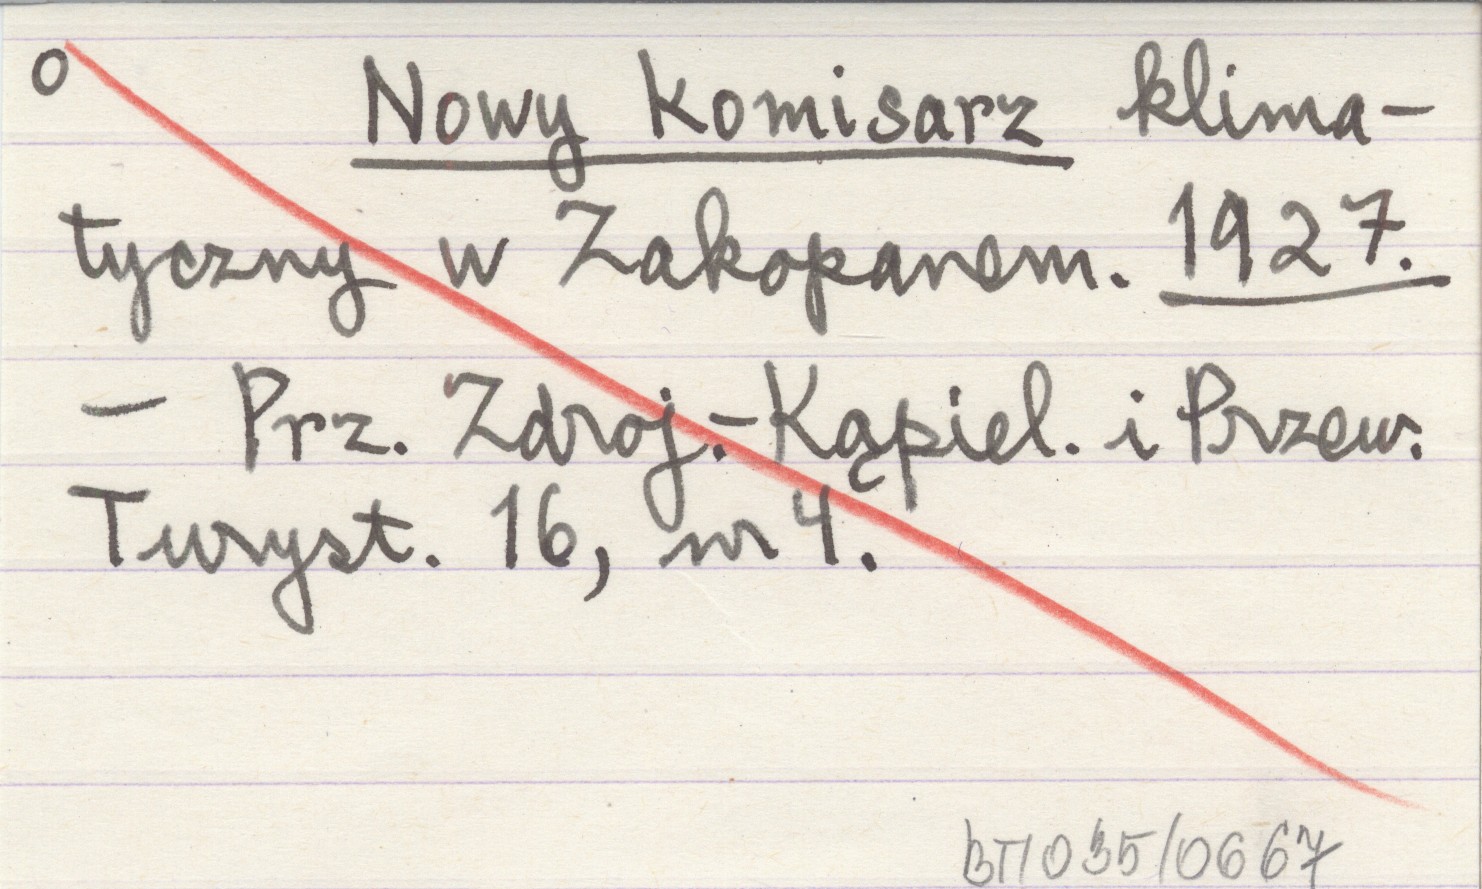 o Nowy Komisarz klima-
tyczny w Zakopanem. 1927.
— Prz. Zdroj.-Kąpiel. i Przew.
Turyst. 16, nr 4.
BT/035/0667